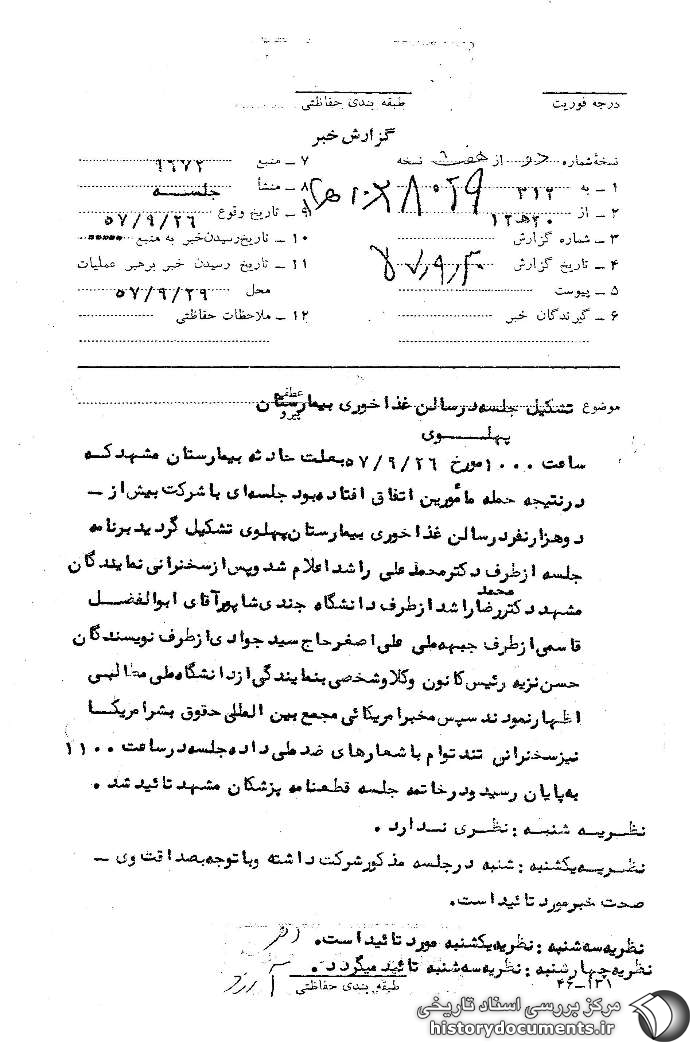 درجه فوریت
طبقه بندی حفاظتی
گزارش خبر
نسخه شماره دو از هفت نسخه
۱ ـ به ۳۱۲
۲ ـ از ۲۰هـ۱۲
۳ ـ شماره گزارش
۴ ـ تاریخ گزارش ۵۷/۹/۳۰
۵ ـ پیوست
۶ ـ گیرندگان خبر
۷ ـ منبع ۹۶۷۲
۸ ـ منشأ جلسه
۹ ـ تاریخ وقوع ۵۷/۹/۲۶
۱۰ ـ تاریخ رسیدن خبر به منبع
۱۱ ـ تاریخ رسیدن خبر برهبر عملیات
محل ۵۷/۹/۲۹
۱۲ ـ ملاحظات حفاظتی
موضوع تشکیل جلسه در سالن غذاخوری بیمارستان
عطف
پیرو
پهلوی
ساعت ۱۰۰۰ مورخ ۵۷/۹/۲۶ بعلت حادثه بیمارستان مشهد که
در نتیجه حمله مأمورین اتفاق افتاده بود جلسه‌ای با شرکت بیش از ـ
دو هزار نفر در سالن غذاخوری بیمارستان پهلوی تشکیل گردید برنامه
جلسه از طرف دکتر محمد علی راشد اعلام شد و پس از سخنرانی نمایندگان
محمد
مشهد دکتر رضا راشد از طرف دانشگاه جندی شاپور آقای ابوالفضل
قاسمی از طرف جبهه ملی علی اصغر حاج سید جوادی از طرف نویسندگان
حسن نزیه رئیس کانون وکلا و شخصی بنمایندگی از دانشگاه ملی مطالبی
اظهار نمودند سپس مخبر امریکائی مجمع بین المللی حقوق بشر امریکا
نیز سخنرانی تند توام با شعارهای ضد ملی داده جلسه در ساعت ۱۱۰۰
به پایان رسید و در خاتمه جلسه قطعنامه پزشکان مشهد تائید شد .
نظریه شنبه : نظری ندارد .
نظریه یکشنبه : شنبه در جلسه مذکور شرکت داشته و با توجه بصداقت وی ـ
صحت خبر مورد تائید است.
نظریه سه شنبه : نظریه یکشنبه مورد تائید است.
نظریه چهارشنبه : نظریه سه شنبه تائید میگردد .
طبقه بندی حفاظتی
۴۶ـ۱۳۱
مرکز بررسی اسناد تاریخی
historydocuments.ir